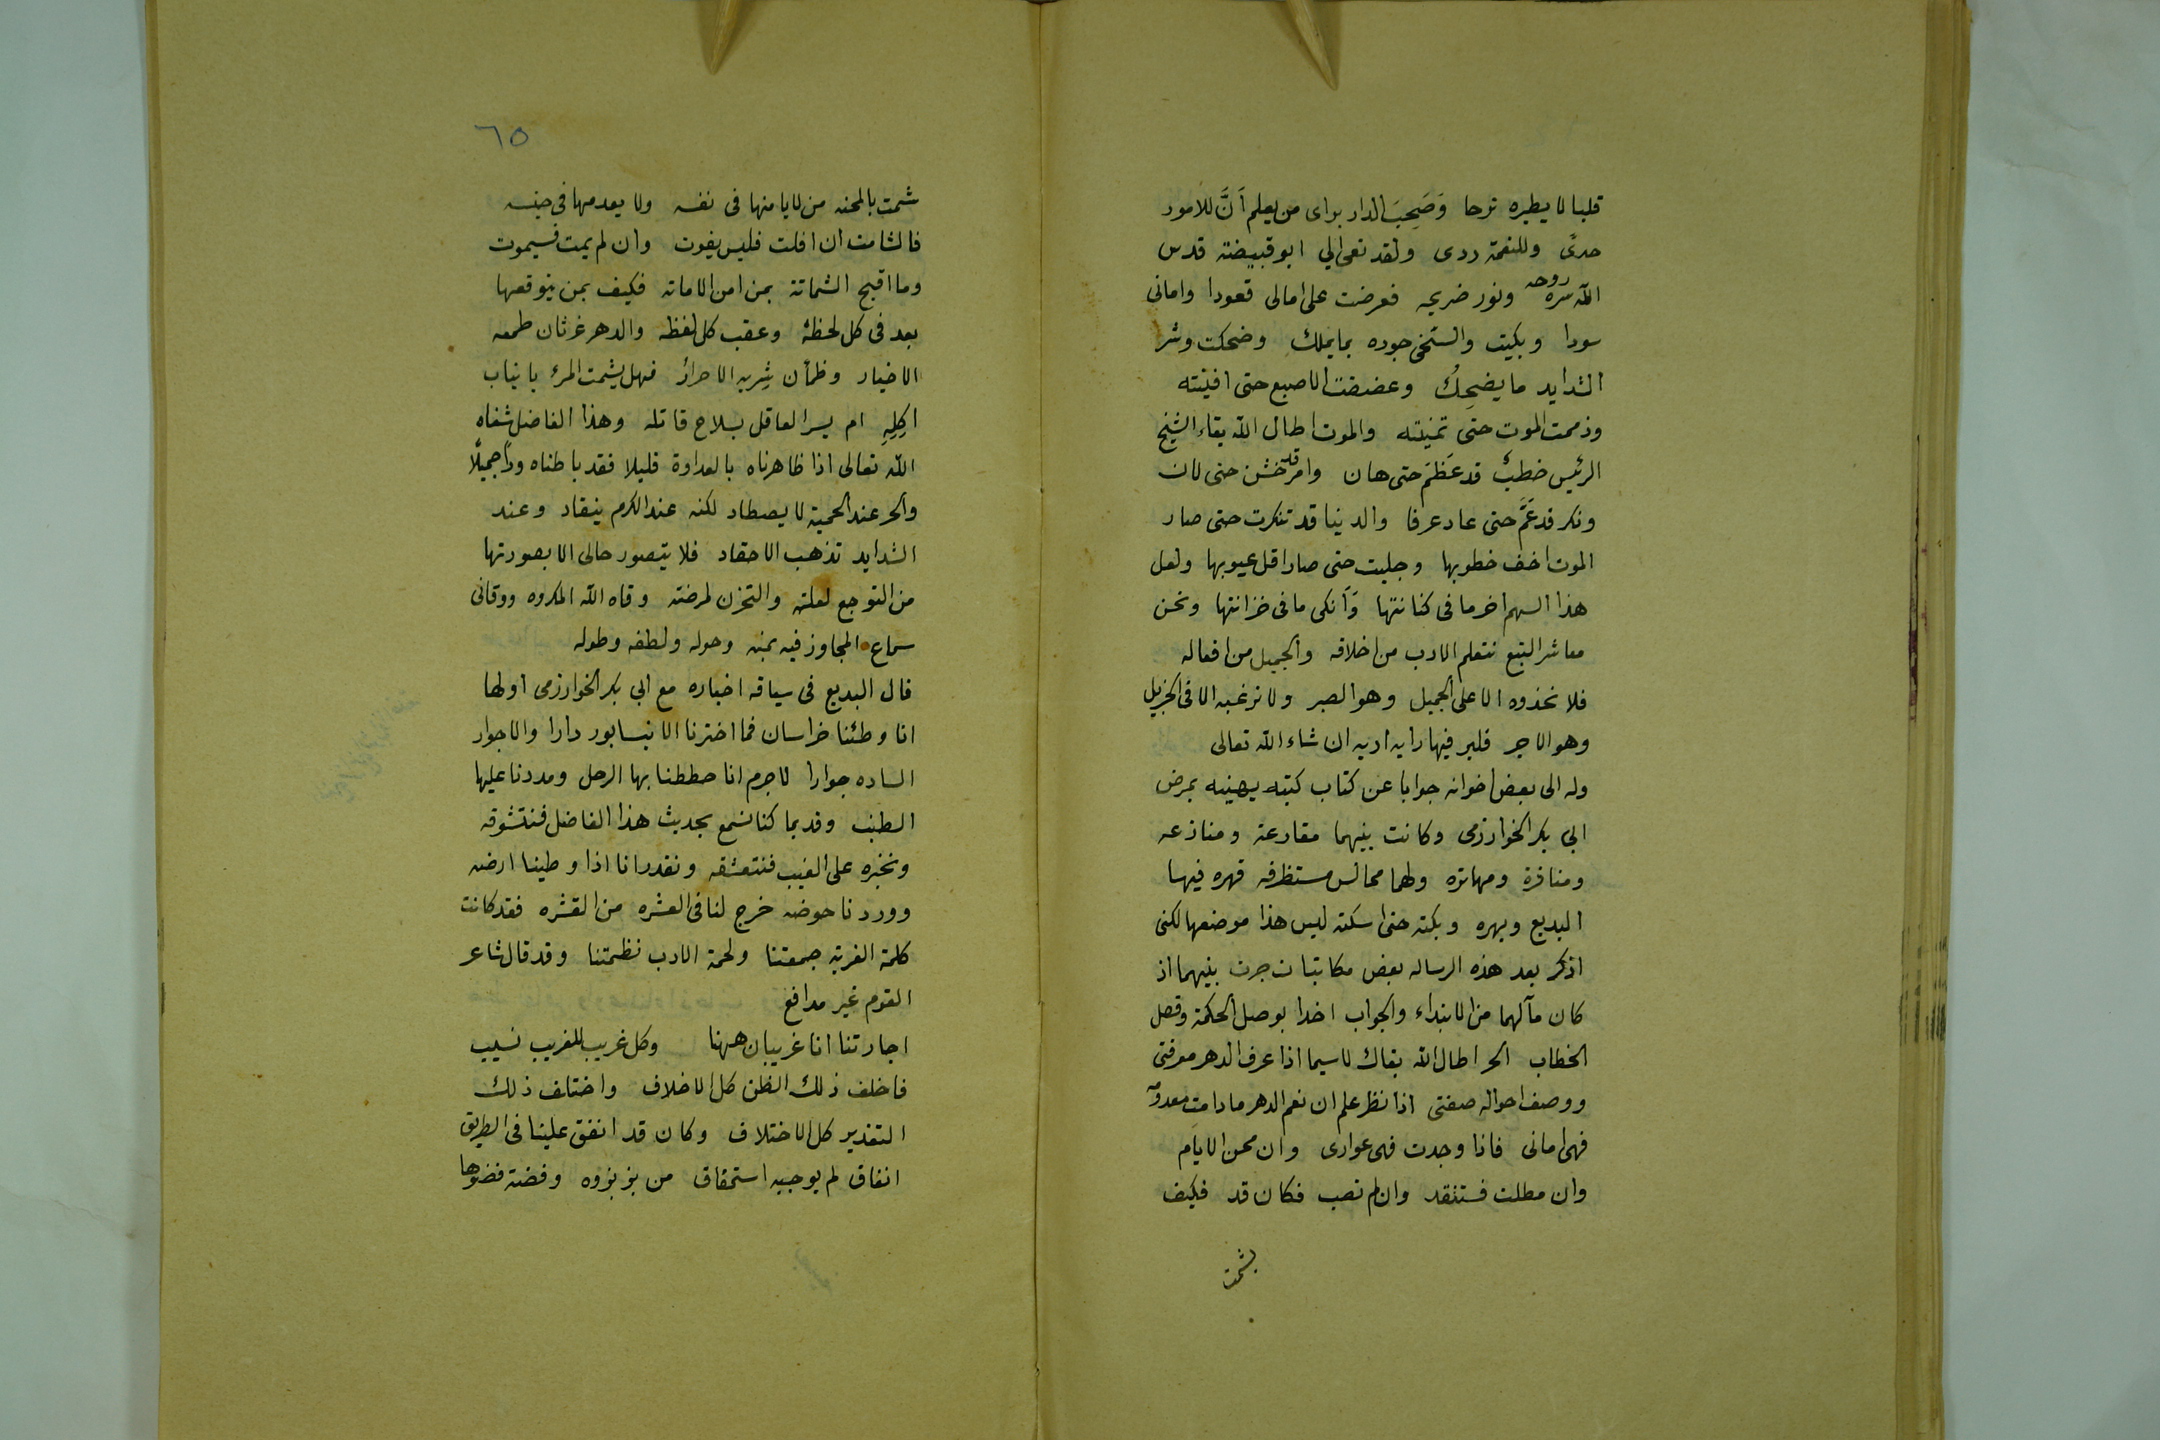 قلبا لا يطيره ترحا وَصَحِبَ الدار براى من يعلم اَنَّ للامور
حدىً وللنعمة ردى ولقد نعى الي ابو قبيصة قدس
الله سره روحه ونور ضريحه فعرضت على امالى قعودا وامانى
سودا وبكيت والسخى جوده بما يملك وضحكت وشر
الشدايد ما يضحِكُ وعضضت الاصبع حتى افنيته
وذممت الموت حتى تمنيته والموت اطال الله بقاء الشيخ
الرئيس خطبٌ قد عَظمَ حتى هان وامر قد خشن حتى لان
ونكر قد عَمَّ حتى عاد عرفا والدنيا قد تنكرت حتى صار
الموت اخف خطوبها وجلبت حتى صار اقل عيوبها ولعل
هذا السهم اخر ما فى كنانتها وَاَنكى ما فى خزانتها ونحن
معاشر التبع نتعلم الادب من اخلاقه والجميل من افعاله
فلا نحذوه الا على الجميل وهو الصبر ولا نرغبه الا فى الجزيل
وهو الاجر فلير فيها رايه اديه ان شاء الله تعالى
وله الى بعض اخوانه جوابا عن كتاب كتبه يهنيه بمرض
ابي بكر الخوارزمى وكانت بينهما مقارعة ومنازعه
ومنافرة ومهاتره ولهما مجالس مستظرفه قهره فيها
البديع وبهره وبكته حتى اسكته ليس هذا موضعها لكنى
اذكر بعد هذه الرساله بعض مكاتبات جرت بينهما اذ
كان مآلهما من الابتداء والجواب اخدا بوصل الحكمة وفصل
الخطاب الحر اطال الله بقاك لاسيما اذا عرف الدهر معرفتى
ووصف احواله صفتى اذا نظر علم ان نعم الدهر ما دامت معدومه
فهى امانى فاذا وجدت فهى عوارى وان محن الايام
وان مطلت فستنقد وان لم تصب فكان قد فكيف
يشمت
٦٥
شمت بالمحنه من لا يامنها فى نفسه ولا يعدمها فى جنسه
فالشامت ان افلت فليس يفوت وان لم يمت فسيموت
وما اقبح الشماتة بمن امن الاماته فكيف بمن يتوقعها
بعد فى كل لحظة وعقب كل لفظه والدهر غرثان طعمه
الاخيار وظمأن شِربه الاحرارُ فهل يشمت المرء بانياب
اكِلِهِ ام يسر العاقل بسلاح قاتله وهذا الفاضل شفاه
الله تعالى اذا ظاهرناه بالعداوة قليلا فقد باطناه وداً جميلًا
والحر عند الحمية لا يصطاد لكنه عند الكرم ينقاد وعند
الشدايد تذهب الاحقاد فلا يتصور حالى الا بصورتها
من التوجع لعلته والتحزن لمرضته وقاه الله المكروه ووقانى
سماع المجاوز فيه بمنه وحوله ولطفه وطوله
قال البديع فى سياقه اخباره مع ابي بكر الخوارزمى اولها
انا وطئنا خراسان فما اخترنا الا نيسابور دارا والا جوار
الساده جوارا لا جرم انا حططنا بها الرحل ومددنا عليها
الطنب وقديما كنا نسمع بحديث هذا الفاضل فنتشوقه
ونخبره على الغيب فنتعشقه ونقدر انا اذا وطينا ارضه
ووردنا حوضه خرج لنا فى العشره من القشره فقد كانت
كلمة الغربة جمعتنا ولحمة الادب نظمتنا وقد قال شاعر
القوم غير مدافع
اجارتنا انا غريبان ههنا وكل غريب للغريب نسيب
فاخلف ذلك الظن كل الاخلاف واختلف ذلك
التقدير كل الاختلاف وكان قد اتفق علينا فى الطريق
اتفاق لم يوجبه استحقاق من بز بزوه وفضة فضوها